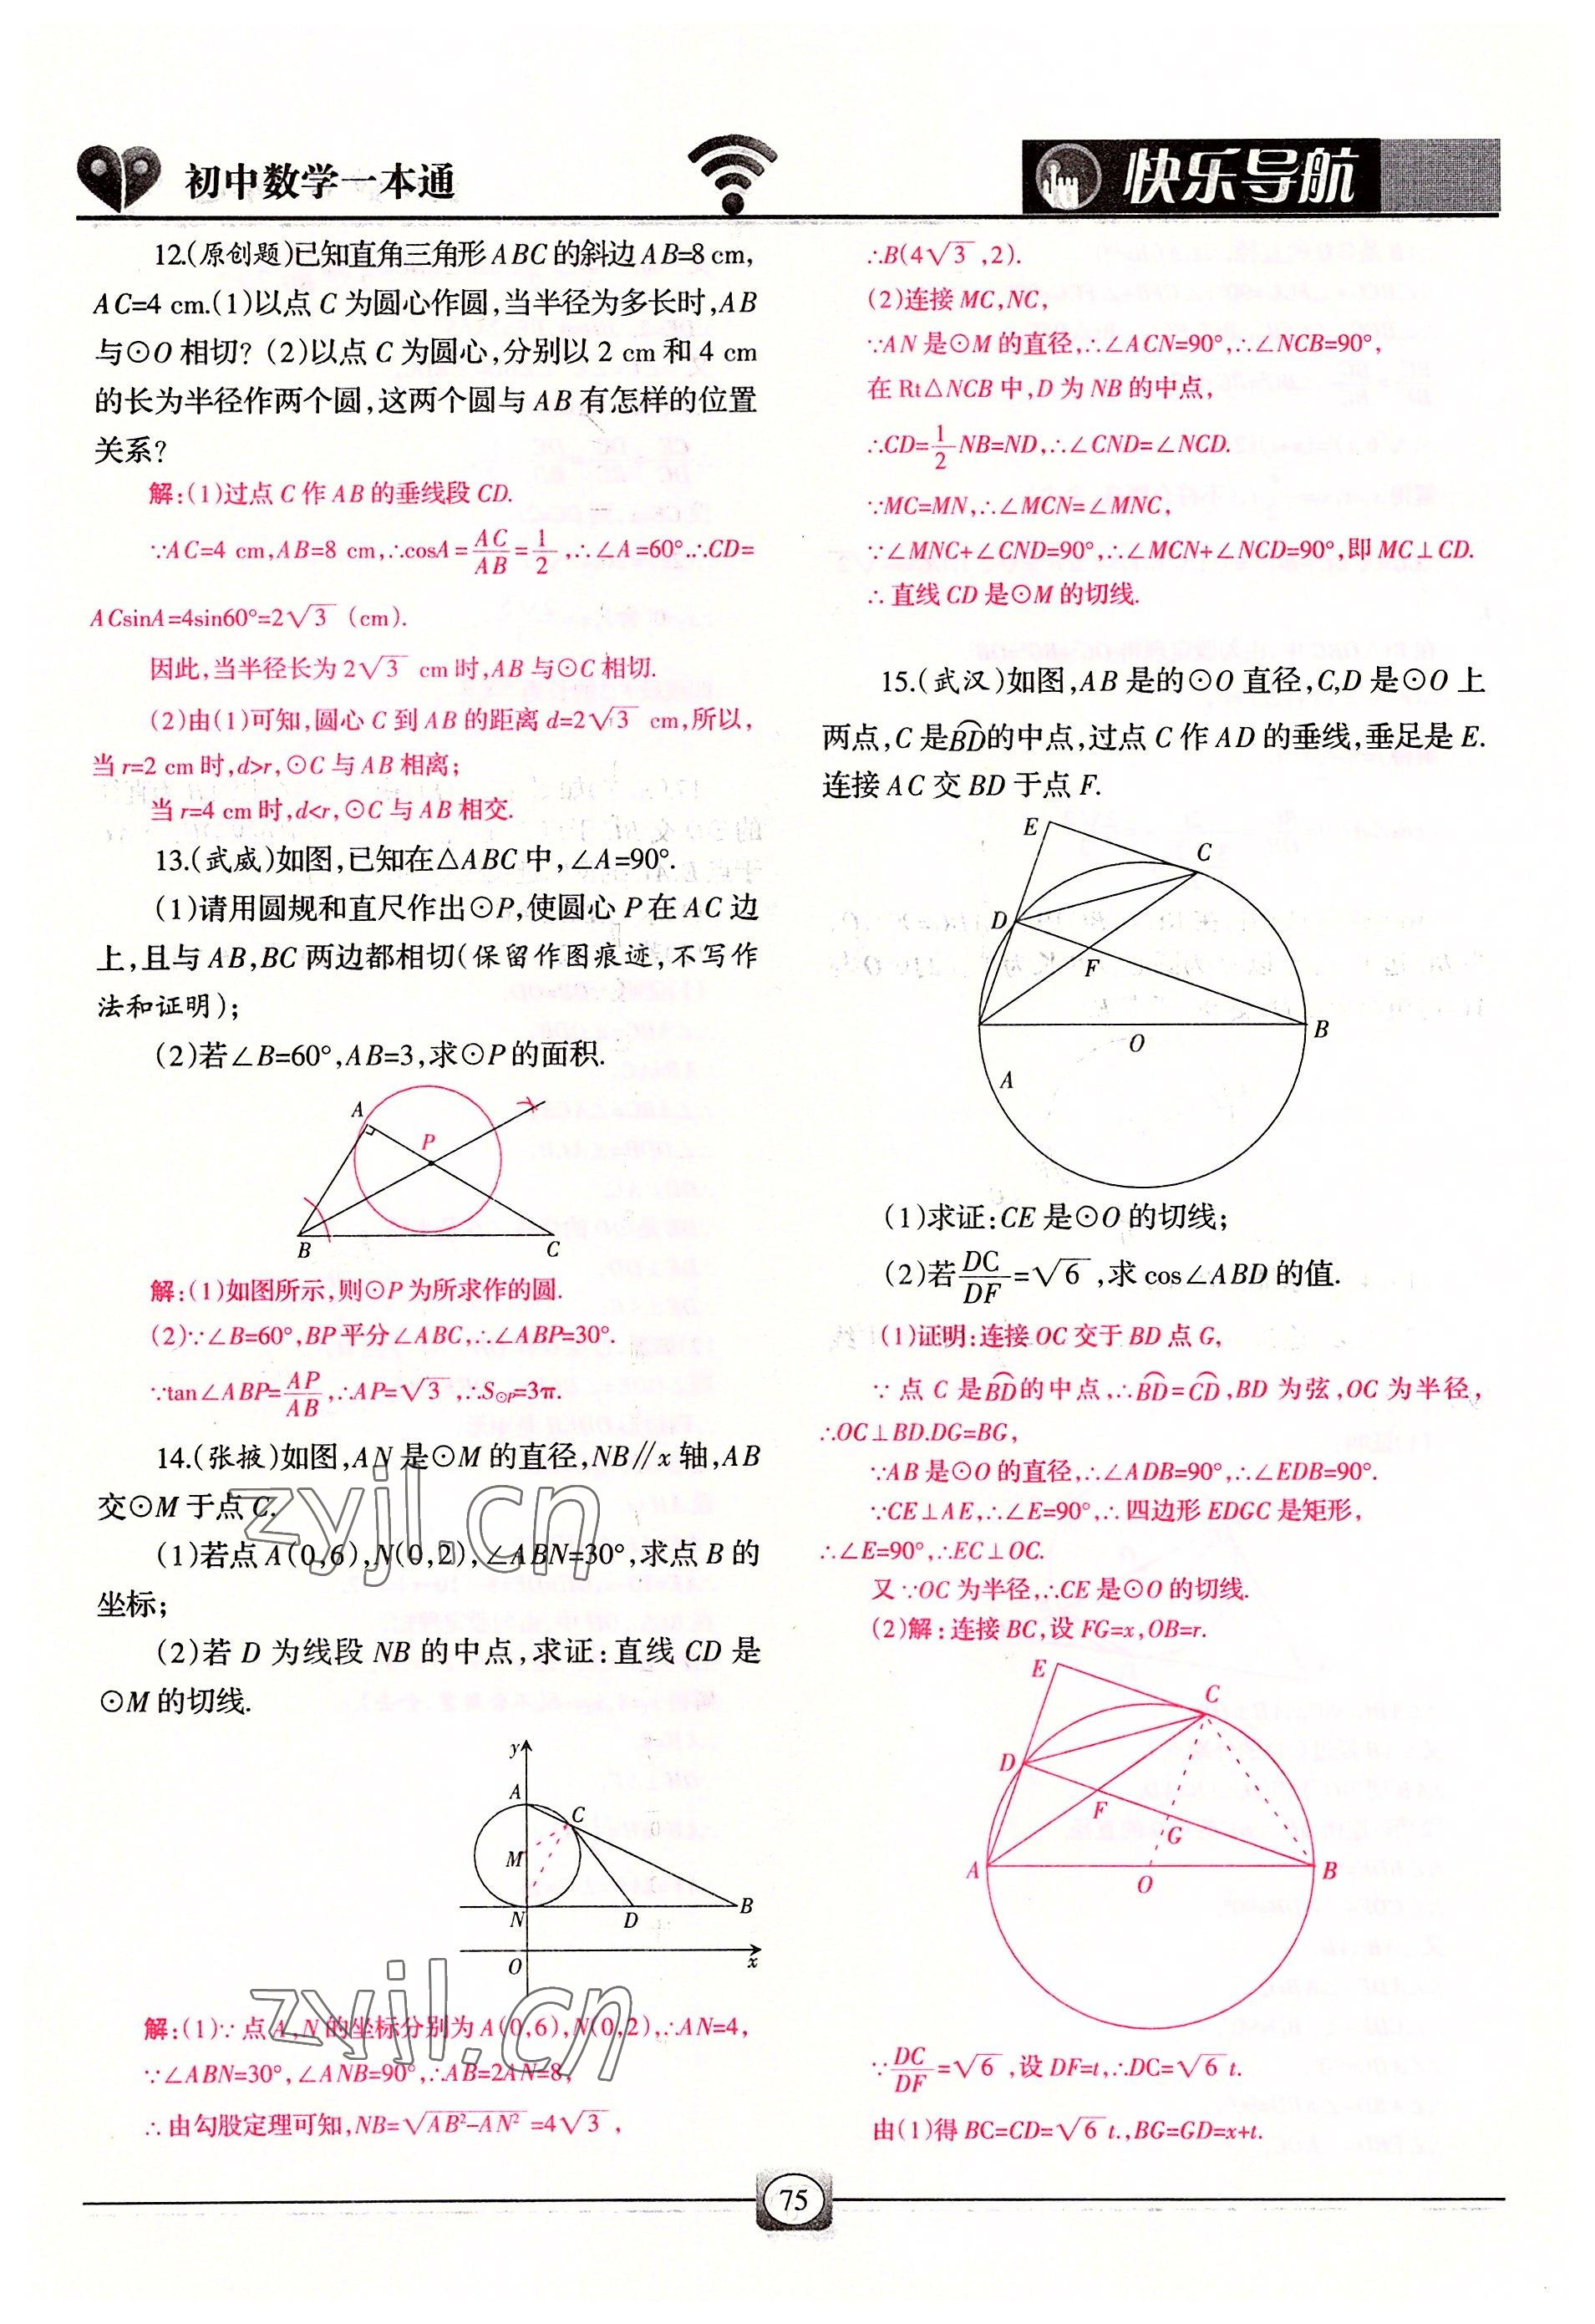 初中数学一本通
快乐导航
12.(原创题)已知直角三角形ABC的斜边AB=8 cm,
AC=4 cm.(1)以点C为圆心作圆,当半径为多长时,AB
与⊙O相切? (2)以点C为圆心,分别以2 cm和4 cm
的长为半径作两个圆,这两个圆与AB有怎样的位置
关系?
解:(1)过点C作AB的垂线段CD.
∵AC=4 cm,AB=8 cm,∴cosA=AC/AB=1/2,∴∠A=60°.∴CD=
ACsinA=4sin60°=2√3 (cm).
因此,当半径长为2√3 cm时,AB与⊙C相切.
(2)由(1)可知,圆心C到AB的距离d=2√3 cm,所以,
当r=2 cm时,d>r,⊙C与AB相离;
当r=4 cm时,d<r,⊙C与AB相交.
13.(武威)如图,已知在△ABC中,∠A=90°.
(1)请用圆规和直尺作出⊙P,使圆心P在AC边
上,且与AB,BC两边都相切(保留作图痕迹,不写作
法和证明);
(2)若∠B=60°,AB=3,求⊙P的面积.
A
P
B
C
解:(1)如图所示,则⊙P为所求作的圆.
(2)∵∠B=60°,BP平分∠ABC,∴∠ABP=30°.
∵tan∠ABP=AP/AB,∴AP=√3,∴S⊙P=3π.
14.(张掖)如图,AN是⊙M的直径,NB∥x轴,AB
交⊙M于点C.
(1)若点A(0,6),N(0,2),∠ABN=30°,求点B的
坐标;
(2)若D为线段NB的中点,求证:直线CD是
⊙M的切线.
y
A
C
M
N
D
B
O
x
zyjl.cn
zyjl.cn
解:(1)∵点A,N的坐标分别为A(0,6),N(0,2),∴AN=4,
∵∠ABN=30°,∠ANB=90°,∴AB=2AN=8,
∴由勾股定理可知,NB=√(AB²-AN²)=4√3,
∴B(4√3,2).
(2)连接MC,NC,
∵AN是⊙M的直径,∴∠ACN=90°,∴∠NCB=90°,
在Rt△NCB中,D为NB的中点,
∴CD=1/2NB=ND,∴∠CND=∠NCD.
∵MC=MN,∴∠MCN=∠MNC,
∵∠MNC+∠CND=90°,∴∠MCN+∠NCD=90°,即MC⊥CD.
∴直线CD是⊙M的切线.
15.(武汉)如图,AB是的⊙O直径,C,D是⊙O上
两点,C是BD⌒的中点,过点C作AD的垂线,垂足是E.
连接AC交BD于点F.
E
C
D
F
O
B
A
(1)求证:CE是⊙O的切线;
(2)若DC/DF=√6,求cos∠ABD的值.
(1)证明:连接OC交于BD点G,
∵点C是BD⌒的中点,∴BD⌒=CD⌒,BD为弦,OC为半径,
∴OC⊥BD.DG=BG,
∵AB是⊙O的直径,∴∠ADB=90°,∴∠EDB=90°.
∵CE⊥AE,∴∠E=90°,∴四边形EDGC是矩形,
∴∠E=90°,∴EC⊥OC.
又∵OC为半径,∴CE是⊙O的切线.
(2)解:连接BC,设FG=x,OB=r.
E
C
D
F
G
A
O
B
∵DC/DF=√6,设DF=t,∴DC=√6t.
由(1)得BC=CD=√6t.,BG=GD=x+t.
75